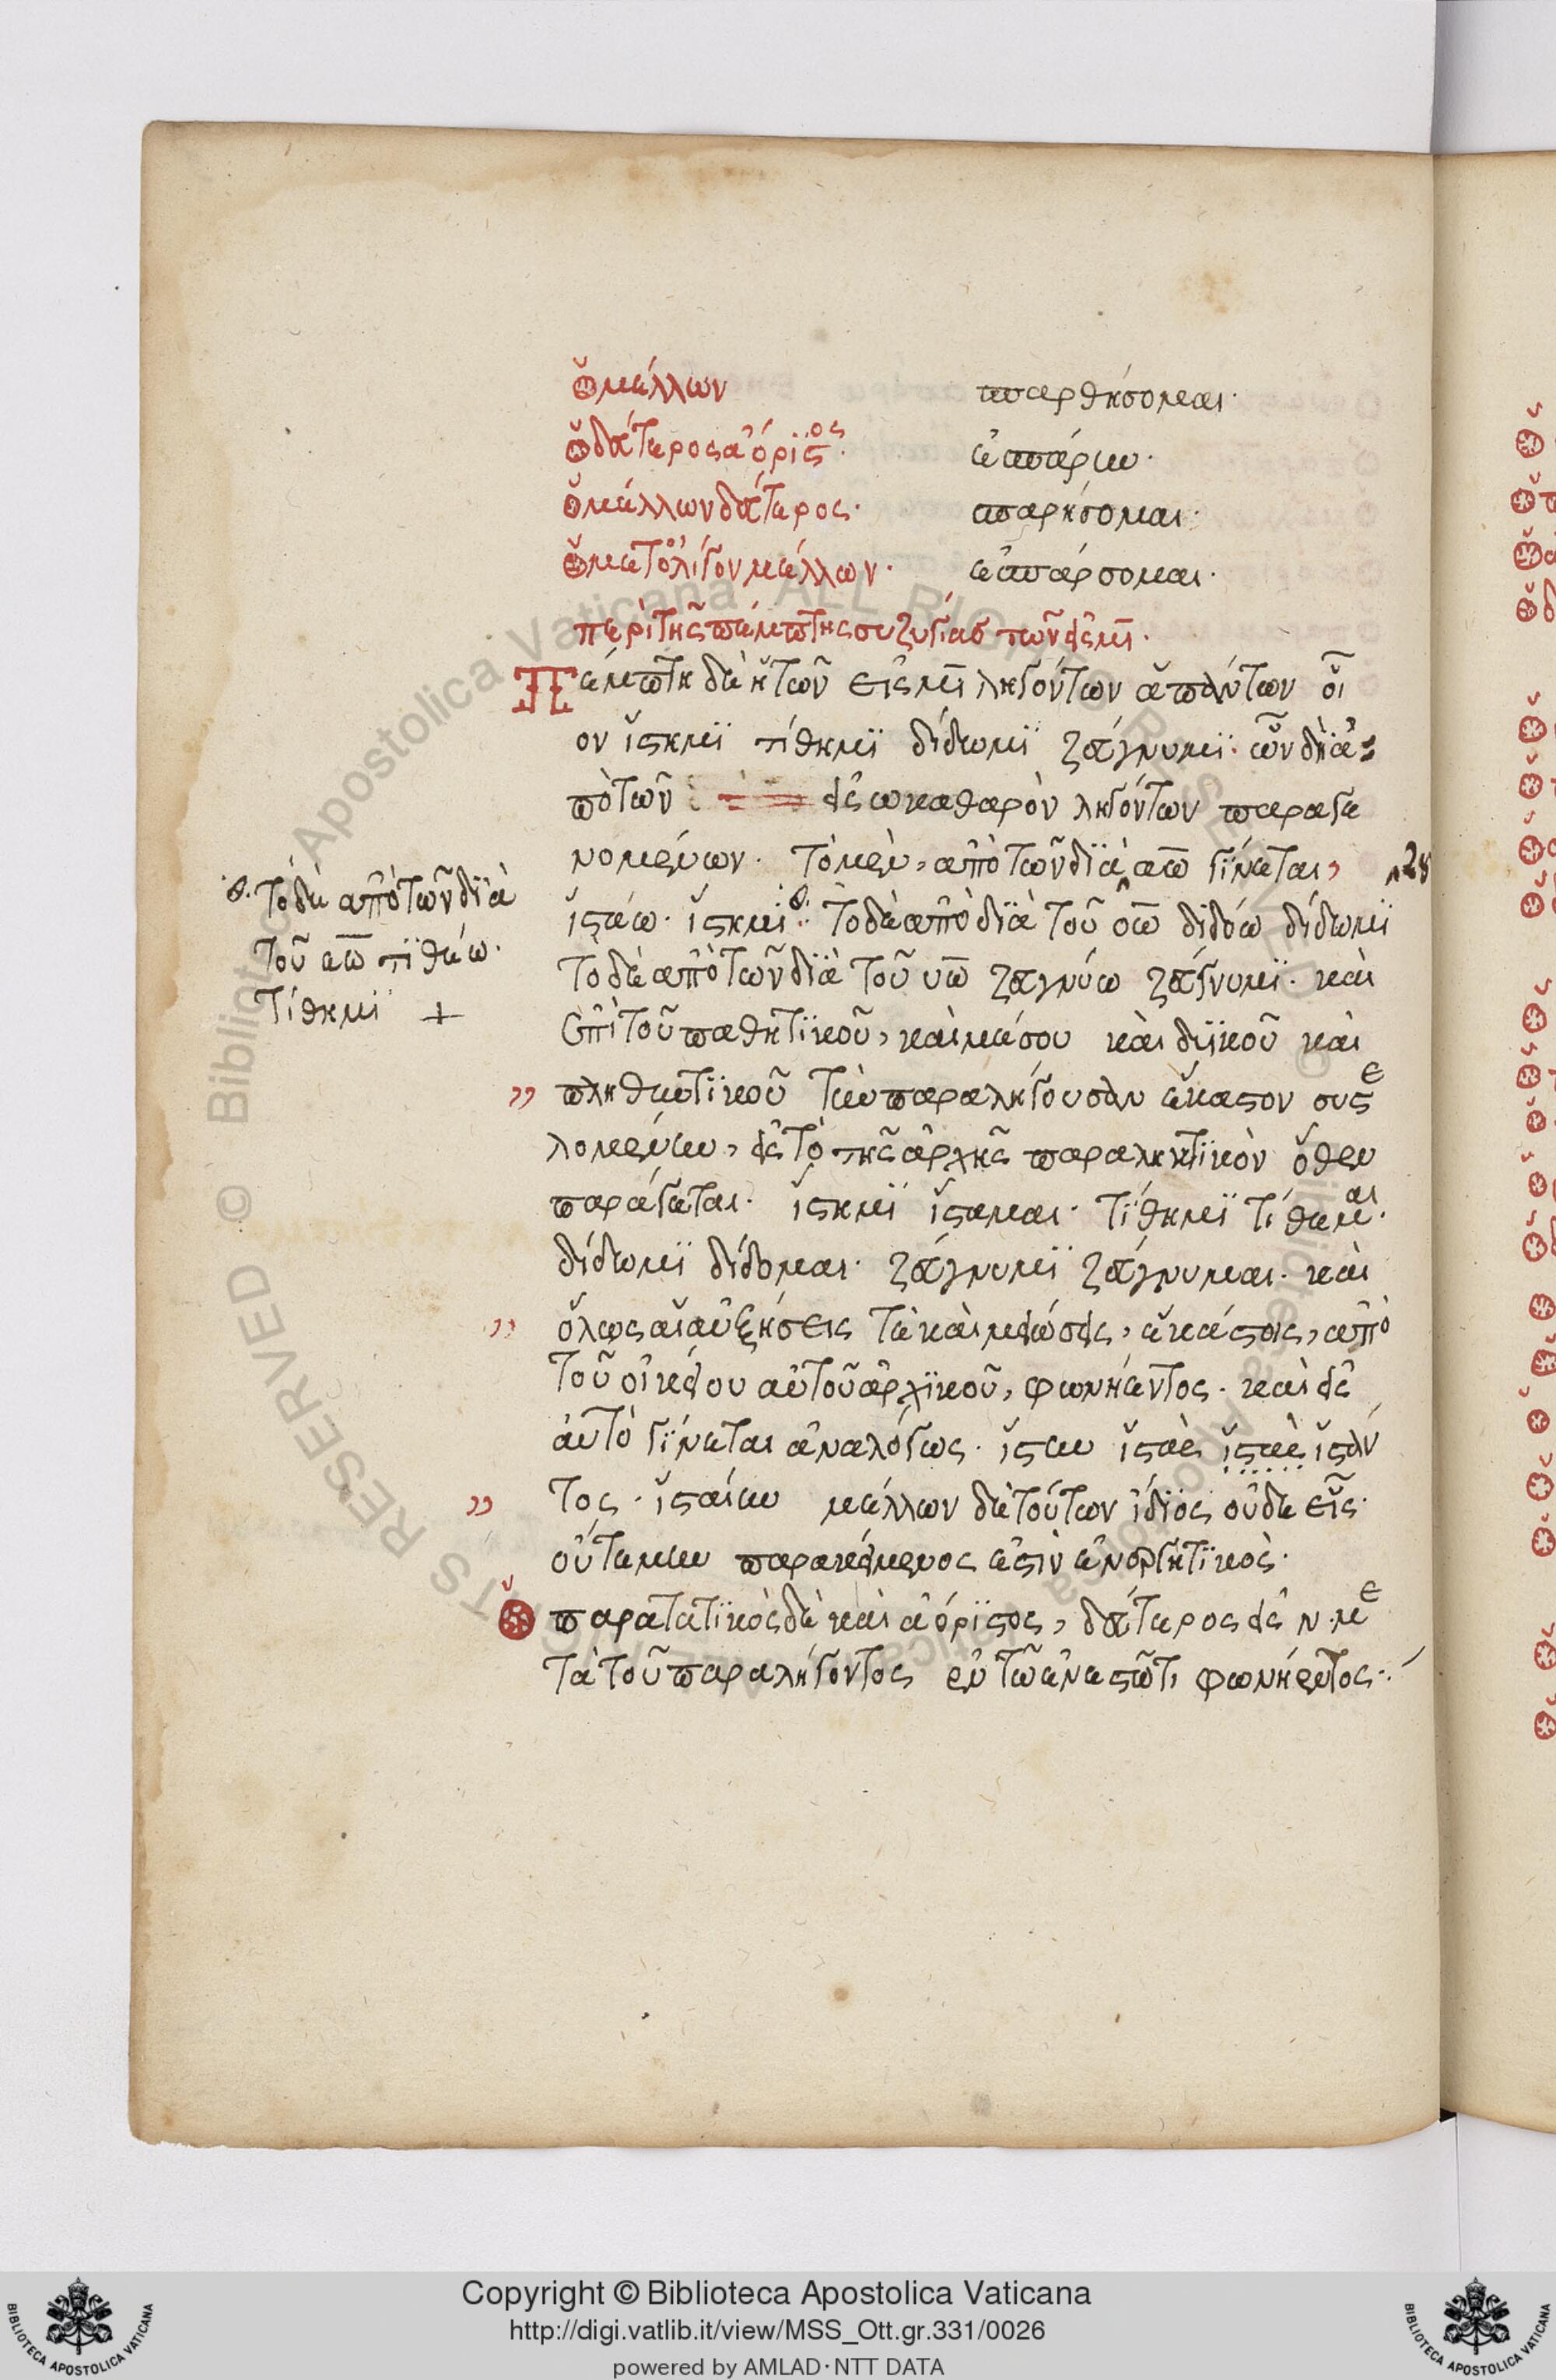 ὁ μέλλων σπαρθήσομαι·
ὁ δεύτερος ἀόριστος· ἔσπαρην·
ὁ μέλλων δεύτερος· σπαρήσομαι·
ὁ μετολίγον μέλλων· ἐσπάρσομαι·
περὶ τῆς πέμπτης συζυγίας τῶν εἰς μι·
Πέμπτη δὲ ἡ τῶν εἰς μι ληγόντων ἁπάντων οἷ
ον ἵστημι τίθημι δίδωμι ζεύγνυμι· ὧν δὴ ἀ
πὸ τῶν εἰς ω καθαρὸν ληγόντων παραγε
νομένων· τὸ μὲν, ἀπὸ τῶν διὰ αω γίνεται,
ἱστάω· ἵστημι· τὸ δὲ ἀπὸ διὰ τοῦ οω διδόω δίδωμι
τὸ δὲ ἀπὸ τῶν διὰ τοῦ υω ζευγνύω ζεύγνυμι· καὶ
ἐπὶ τοῦ παθητικοῦ, καὶ μέσου καὶ δυϊκοῦ καὶ
πληθυντικοῦ τὴν παραλήγουσαν ἕκαστον συστε
λομένην, εἰς τὸ τῆς ἀρχῆς παραληκτικὸν ὅθεν
παράγεται· ἵστημι ἵσταμαι· τίθημι τίθεμαι·
δίδωμι δίδομαι· ζεύγνυμι ζεύγνυμαι· καὶ
ὅλως αἱ αὐξήσεις τὲ καὶ μειώσεις, ἑκάστοις, ἀπὸ
τοῦ οἰκείου αὐτοῦ ἀρχικοῦ, φωνήεντος· καὶ εἰς
αὐτὸ γίνεται ἀναλόγως· ἵστην ἱστὰς ἱστὰς ἱστάν
τος· ἱσταίην μέλλων δὲ τούτων ἴδιος οὐδὲ εἷς·
οὔτε μὴν παρακείμενος ἐστὶν ἐνεργητικὸς·
ὁ παρατατικὸς δὲ καὶ ἀόριστος, δεύτερος εἰς ν· με
τὰ τοῦ παραλήγοντος ἐν τῶ ἐνεστῶτι φωνήεντος·
τὸ δὲ ἀπὸ τῶν διὰ
τοῦ εω τιθέω·
τίθημι +
Copyright © Biblioteca Apostolica Vaticana
http://digi.vatlib.it/view/MSS_Ott.gr.331/0026
powered by AMLAD·NTT DATA